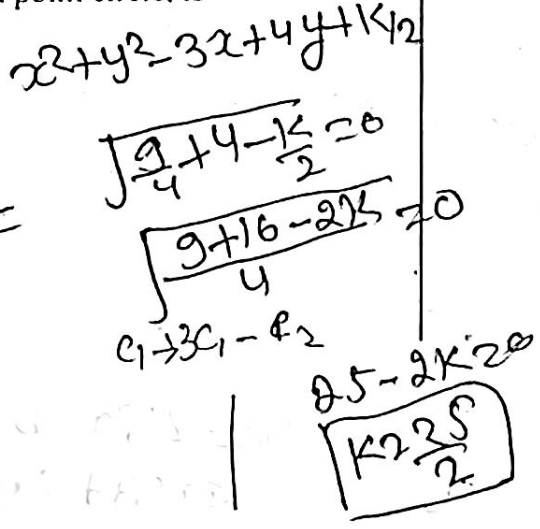 x²+y²-3x+4y+K/2
√(9/4+4-K/2)=0
= √((9+16-2K)/4) = 0
C₁→3C₁-C₂
25-2K=0
K=25/2